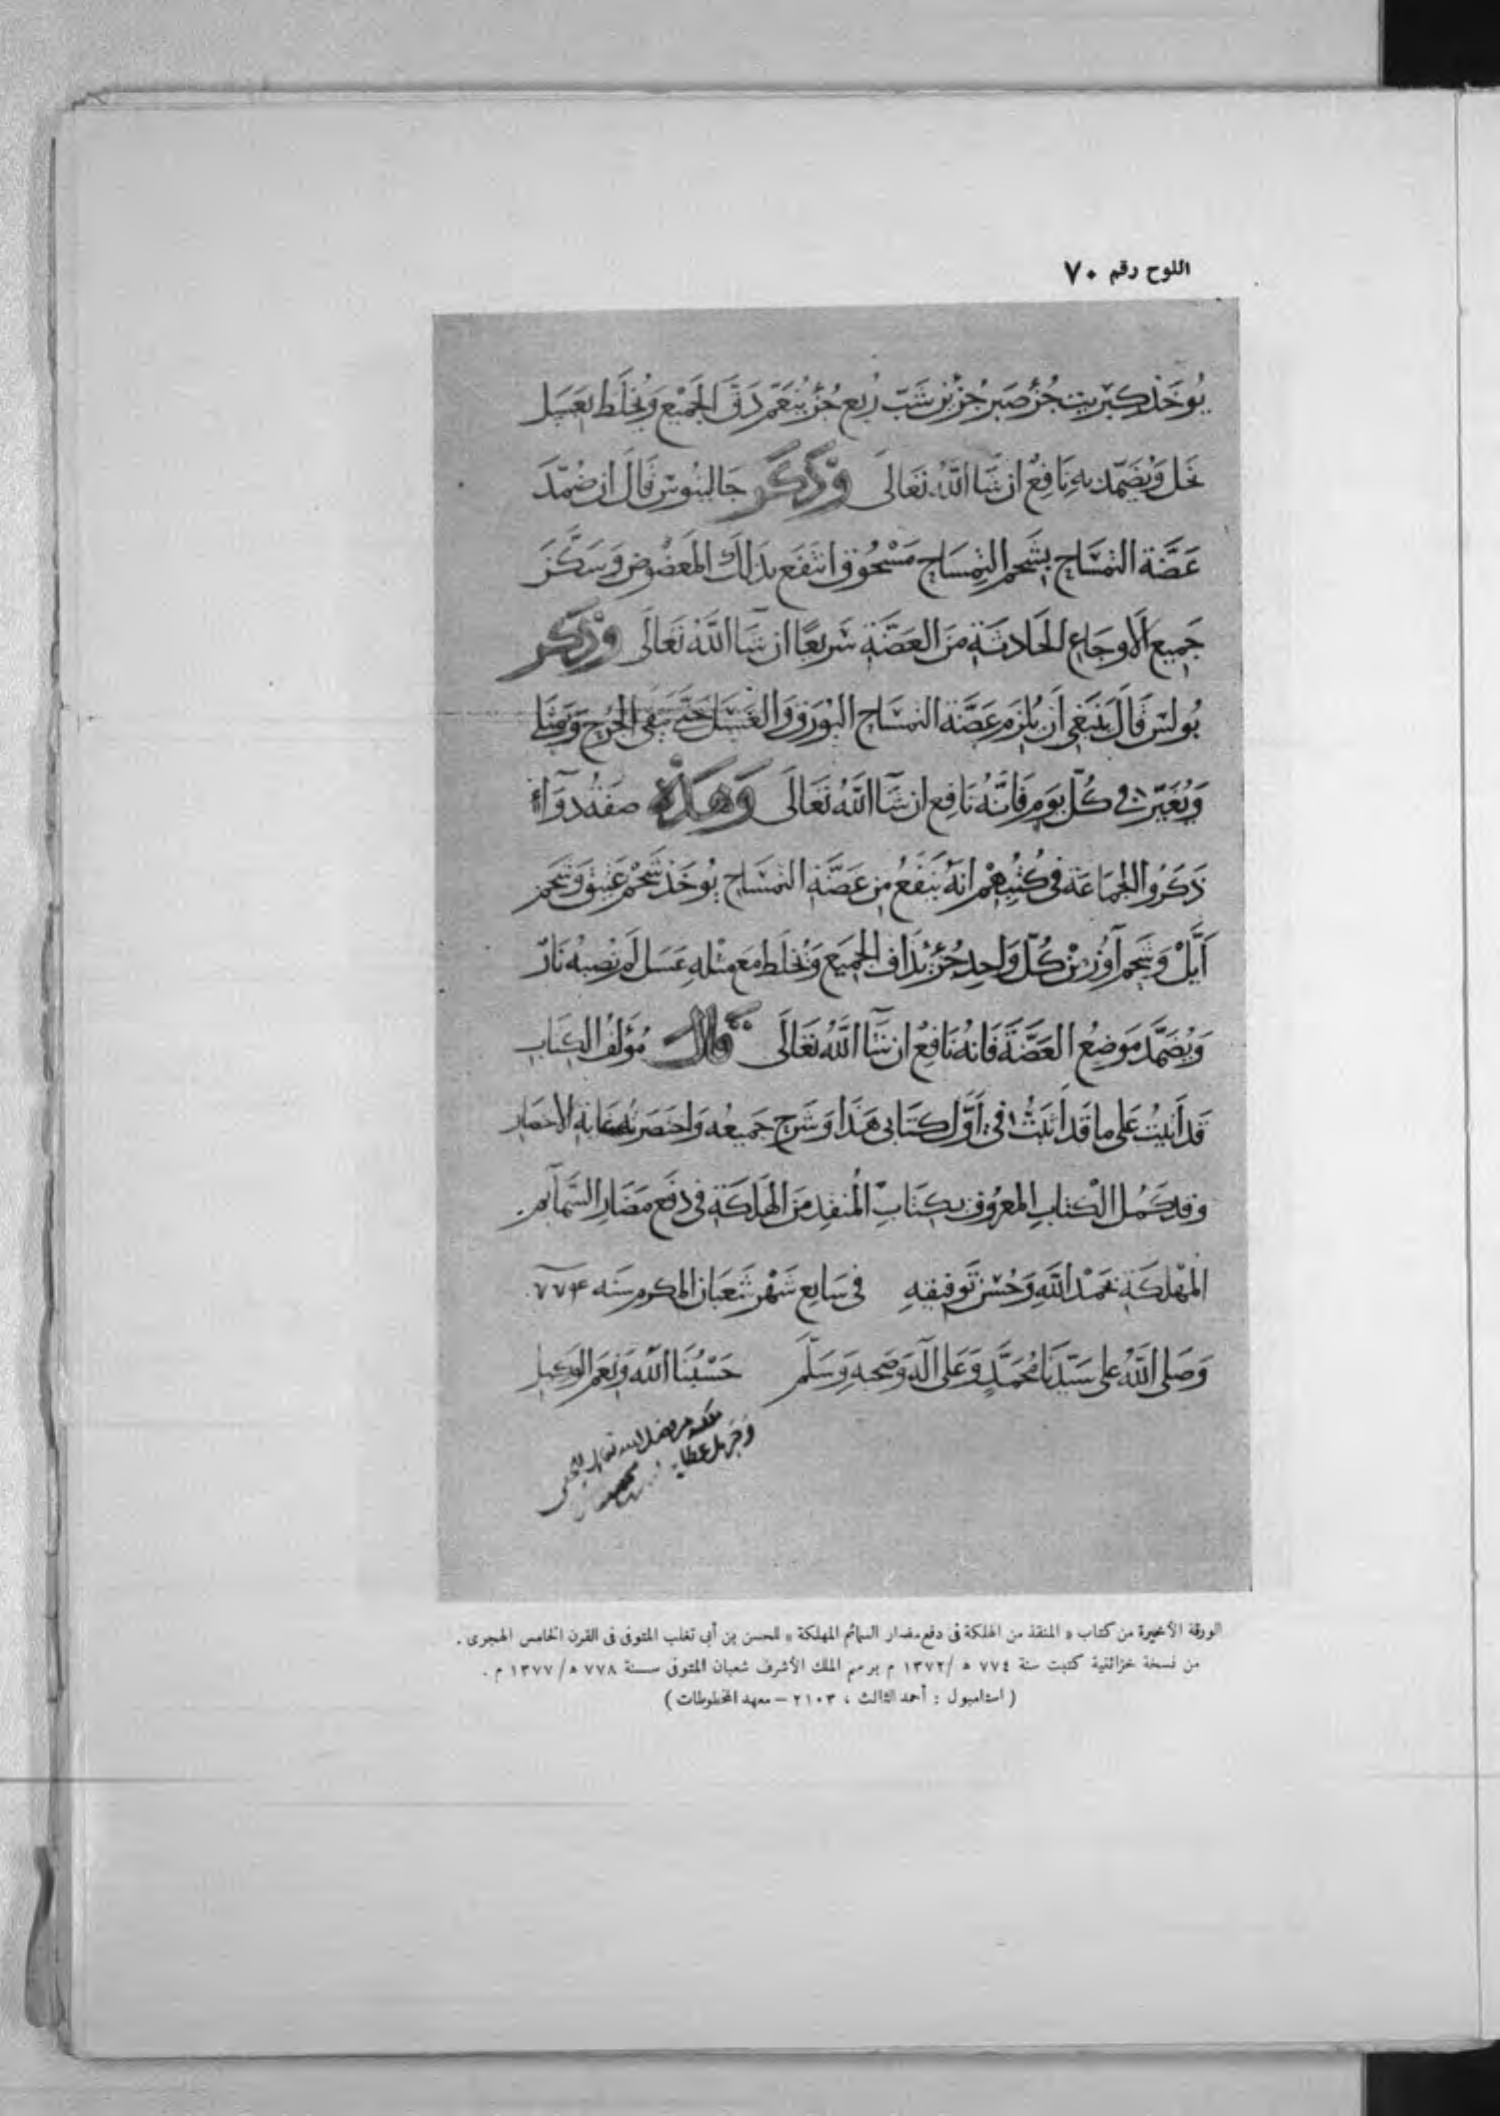 اللوح رقم ٧٠
يُوخَذ كبريت جُزْ صَبر جُزْئين شَبّ رُبع جُزْ يُنَعّم دَقّ الجَميْع وَيُخلَط بعَسَل
نحَل وَيُضَمّد به نَافِعٌ ان شَا اللهُ تعَالَى وَذكر جَالينُوسْ قَالَ ان ضُمّدَ
عَضَّة التمسَاح بشَحم التِمسَاح مَسْحُوق انتفَع بذلك المَعضُوض وَسَكَّن
جَميع الأوجَاع الحَادثة مَن العَضَّة سَريعًا ان شَا اللهُ تعَالَى وَذكر
بُولسْ قالَ يَنبَغي أن يُلزم عَضَّة التمسَاح البُورَق وَالعَسَل حَتى يَنقى الجُرح وَيمتلى
وَيُغَيّر في كُلّ يَوم فَانَّهُ نَافع ان شَآ اللهُ تعَالَى وَهَذه صفَةُ دَوَآء
ذَكَرُوا الجمَاعَة فى كُتُبهمْ انهُ يَنفَعُ من عَضَّة التمسَاح يُوخَذ شَحْم عَتيق وَشَحم
أيَّلْ وَشَحم آوزْ منْ كُلّ وَاحِد جُزْ يُذَاف الجَميع وَيُخلَط مَع مثله عَسَل لَم تُصبهُ نَارٌ
وَيُضَمَّد مَوضعُ العَضَّة فَانهُ نَافعٌ ان شَآ اللهُ تعَالَى قال مُؤَلفُ الكتَاب
قَد أتيتُ عَلى ما قَد أثبَتُّ في أوَّل كتَابى هَذَا وَشَرح جَميعُه وَاختَصَرتُه غاية الاختصار
وقد كَمُل الكتاب المعرُوف بكتَاب المُنقِذ مَن الهَلكَة فى دَفع مَضَار السَّمآيم
المهْلكَة بحَمْد اللهِ وَحُسْن تَوفيقهِ فى سَابع شَهْر شَعبَان المكرم سَنَه ٧٧٤
وَصَلى اللهُ على سَيّدنا مُحَمَّدٍ وَعَلى آلهِ وَصَحبهِ وَسَلّم حَسْبُنَا اللهُ وَنعْمَ الوَكيل
ملكه من فضل الله تعالى
وجزيل عطايه
الورقة الأخيرة من كتاب « المنقذ من الهلكة فى دفع مضار السمائم المهلكة » للحسن بن أبى تغلب المتوفى فى القرن الخامس الهجرى .
من نسخة خزائنية كتبت سنة ٧٧٤ ه / ١٣٧٢ م برسم الملك الأشرف شعبان المتوفى سنة ٧٧٨ ه / ١٣٧٧ م .
( استامبول : أحمد الثالث ، ٢١٠٣ – معهد المخطوطات )